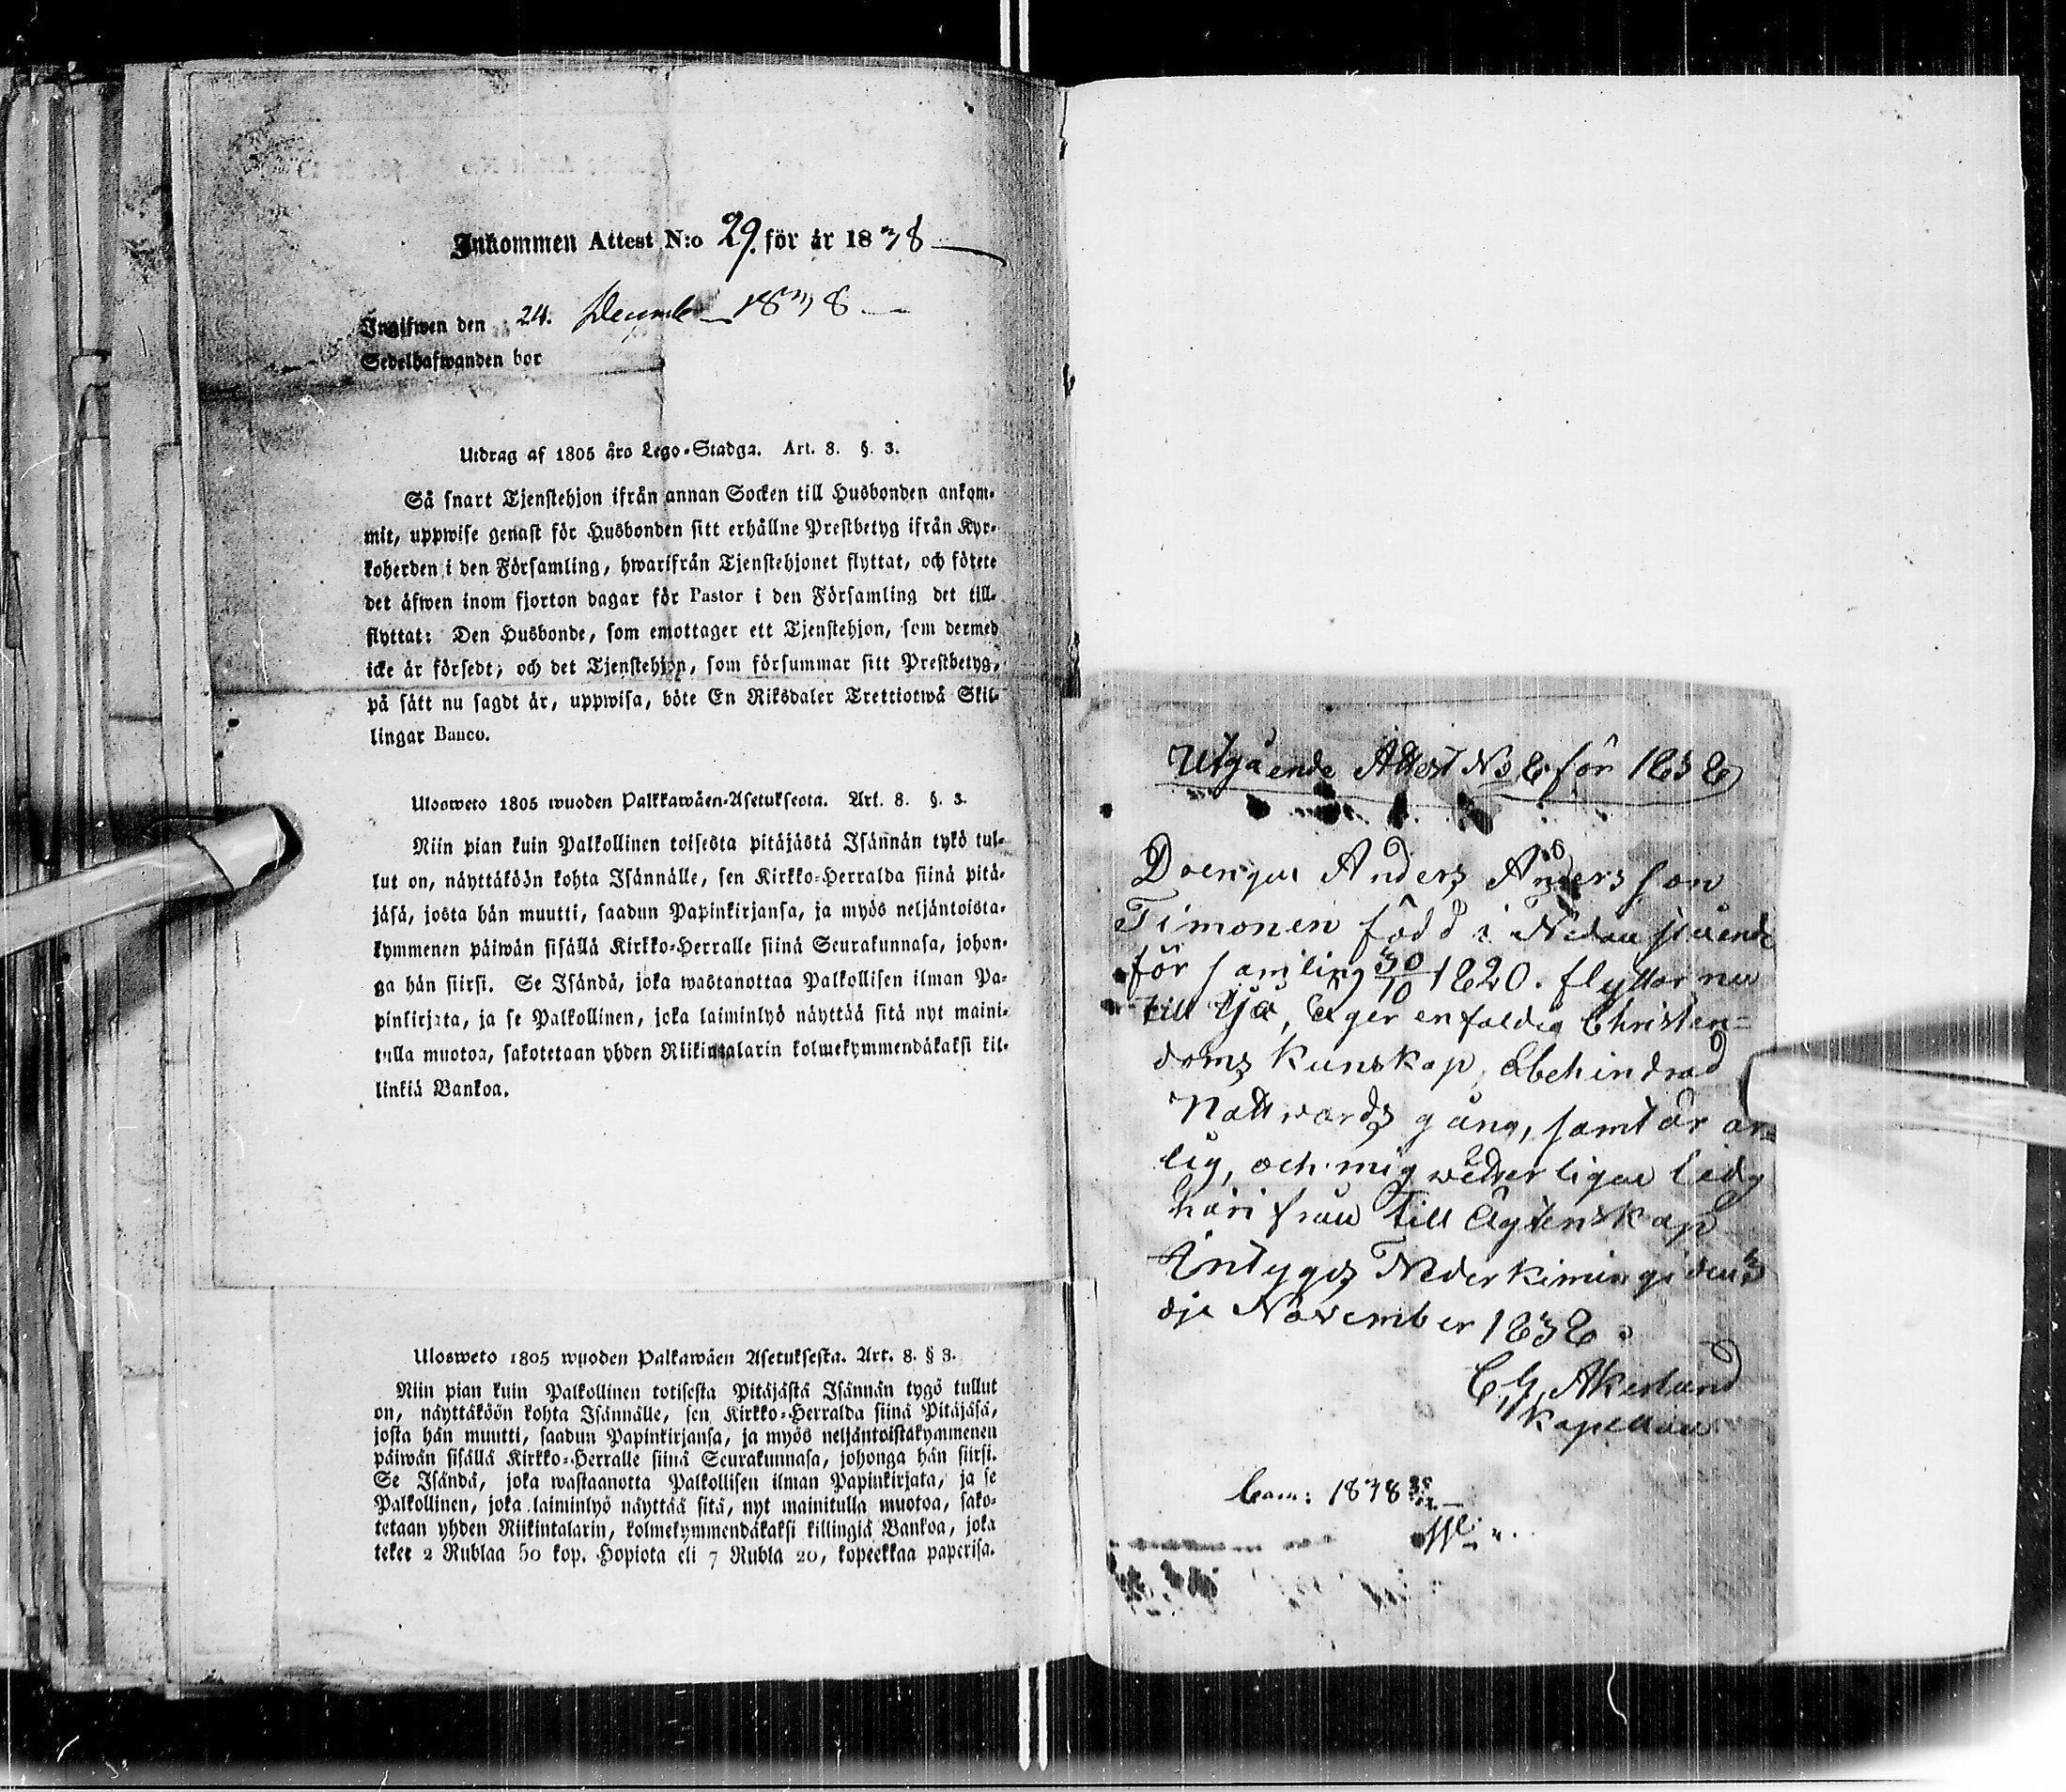 Inkommen Attest N:o 29. för år 1838
Ingifwen den 24. Decemb 1838
Sedelhafwanden bor
Utdrag af 1805 års Lego-Stadga. Art. 8. §. 3.
Så snart Tjenstehjon ifrån annan Socken till Husbonden ankom-
mit, uppwise genast för Husbonden sitt erhållne Prestbetyg ifrån Kyr-
koherden i den Församling, hwarifrån Tjenstehjonet flyttat, och förete
det äfwen inom fjorton dagar för Pastor i den Församling det till-
flyttat: Den Husbonde, som emottager ett Tjenstehjon, som dermed
icke är försedt, och det Tjenstehjon, som försummar sitt Prestbetyg,
på sätt nu sagdt är, uppwisa, böte En Riksdaler Trettiotwå Skil-
lingar Banco.
Ulosweto 1805 wuoden Palkkawäen-Asetuksesta. Art. 8. §. 3.
Niin pian kuin Palkollinen toisesta pitäjästä Isännän tykö tul-
lut on, näyttäköön kohta Isännälle, sen Kirkko-Herralda siinä pitä-
jäsä, josta hän muutti, saadun Papinkirjansa, ja myös neljäntoista-
kymmenen päiwän sisällä Kirkko-Herralle siinä Seurakunnasa, johon-
ga hän siirsi. Se Isändä, joka wastanottaa Palkollisen ilman Pa-
pinkirjata, ja se Palkollinen, joka laiminlyö näyttää sitä nyt maini-
tulla muotoa, sakotetaan yhden Riikintalarin kolmekymmendäkaksi kil-
linkiä Bankoa.
Ulosweto 1805 wuoden Palkawäen Asetuksesta. Art. 8. § 3.
Niin pian kuin Palkollinen totisesta Pitäjästä Isännän tygö tullut
on, näyttäköön kohta Isännälle, sen Kirkko-Herralda siinä Pitäjäsä,
josta hän muutti, saadun Papinkirjansa, ja myös neljäntoistakymmenen
päiwän sisällä Kirkko-Herralle siinä Seurakunnasa, johonga hän siirsi.
Se Isändä, joka wastaanotta Palkollisen ilman Papinkirjata, ja se
Palkollinen, joka laiminlyö näyttää sitä, nyt mainitulla muotoa, sako-
tetaan yhden Riikintalarin, kolmekymmendäkaksi killingiä Bankoa, joka
teket 2 Rublaa 50 kop. Hopiota eli 7 Rubla 20, kopeekkaa paperisa.
Utgående Attest No 8 för 1838
Drengen Anders Andersson
Timonen född i Nedanstående
församling 30/10 1820. flyttar nu
till Ijå, äger enfaldig Christen=
doms kunskap, obehindrad
Nattwards gång, samt är är=
lig, och mig weterligen ledig
härifrån till Ägtenskap
Intygas Nederkimingi den 3
dje November 1838.
C G Åkerlund
Kapellan
Cam: 1838